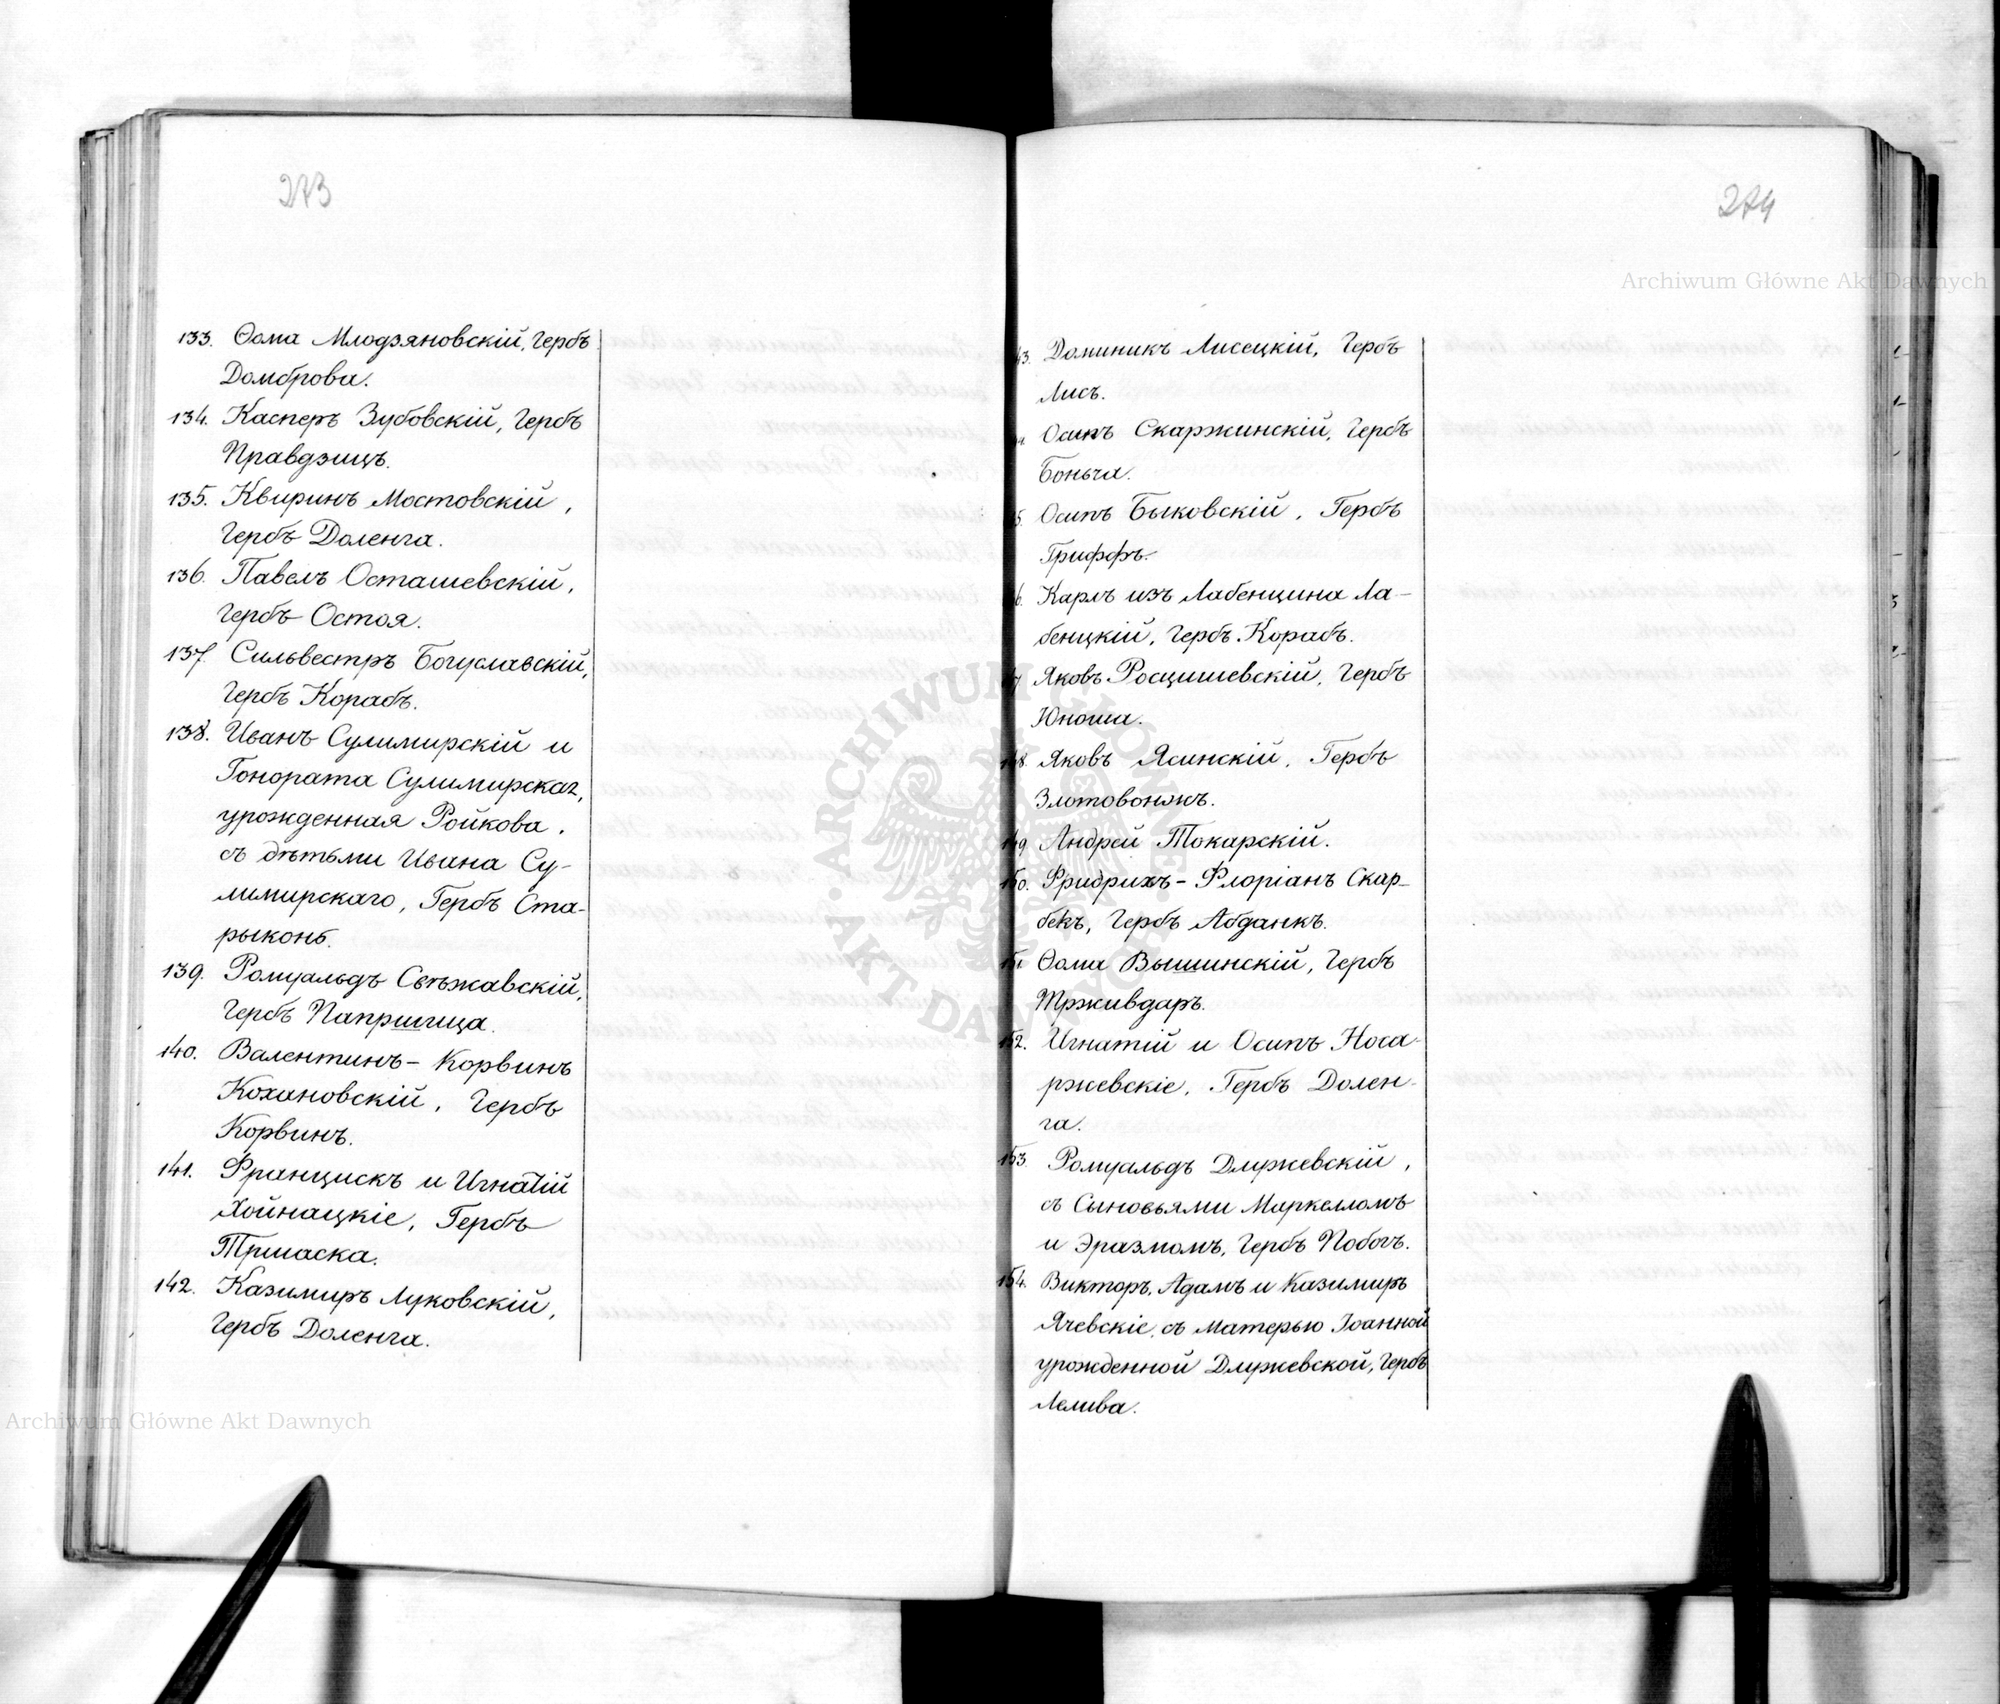 273
133. Ѳома Млодзяновскій, Гербъ
Домброва.
134. Касперъ Зубовскій, Гербъ
Правдзицъ.
135. Квиринъ Мостовскій,
Гербъ Доленга.
136. Павелъ Осташевскій,
Гербъ Остоя.
137. Сильвестръ Богуславскій,
Гербъ Корабъ.
138. Иванъ Сулимирскій и
Гонората Сулимирская,
урожденная Ройкова,
съ дѣтьми Ивана Су-
лимирскаго, Гербъ Ста-
рыконь.
139. Ромуальдъ Свѣжавскій,
Гербъ Папршица.
140. Валентинъ-Корвинъ
Кохановскій, Гербъ
Корвинъ.
141. Францискъ и Игнатій
Хойнацкіе, Гербъ
Тршаска.
142. Казимиръ Луковскій,
Гербъ Доленга.
274
43. Доминикъ Лисецкій, Гербъ
Лисъ.
Осипъ Скаржинскій, Гербъ
Боньча.
5. Осипъ Быковскій, Гербъ
Гриффъ.
6. Карлъ изъ Лабенцина Ла-
бенцкій, Гербъ Корабъ.
7 Яковъ Росцишевскій, Гербъ
Юноша.
148. Яковъ Ясинскій, Гербъ
Злотовонжъ.
149 Андрей Токарскій.
150. Фридрихъ-Флоріанъ Скар-
бекъ, Гербъ Абданкъ.
151 Ѳома Вышинскій, Гербъ
Трживдаръ.
152. Игнатій и Осипъ Носа-
ржевскіе, Гербъ Долен-
га.
153. Ромуальдъ Длужевскій,
съ Сыновьями Маркелломъ
и Эразмомъ, Гербъ Побогъ.
154. Викторъ, Адамъ и Казимиръ
Ячевскіе, съ Матерью Іоанной
урожденной Длужевской, Гербъ
Лелива.
Archiwum Główne Akt Dawnych
Archiwum Główne Akt Dawnych
ARCHIWUM GŁÓWNE AKT DAWNYCH